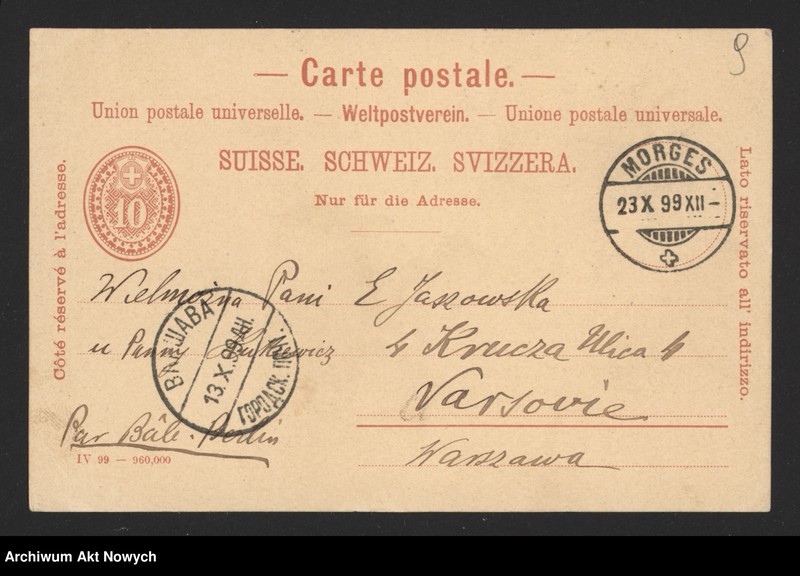 9
— Carte postale. —
Union postale universelle. — Weltpostverein. — Unione postale universale.
SUISSE. SCHWEIZ. SVIZZERA.
Nur für die Adresse.
Côté réservé à l'adresse.
Lato riservato all' indirizzo.
10
MORGES
23 X 99 XII –
Wielmożna Pani E Jaszowska
u Panny
4 Krucza Ulica 4
Varsovie
Warszawa
Par Bâle-Berlin
ВАРШАВА
13.X.99
ГОРОДСК.
IV 99 — 960,000
Archiwum Akt Nowych